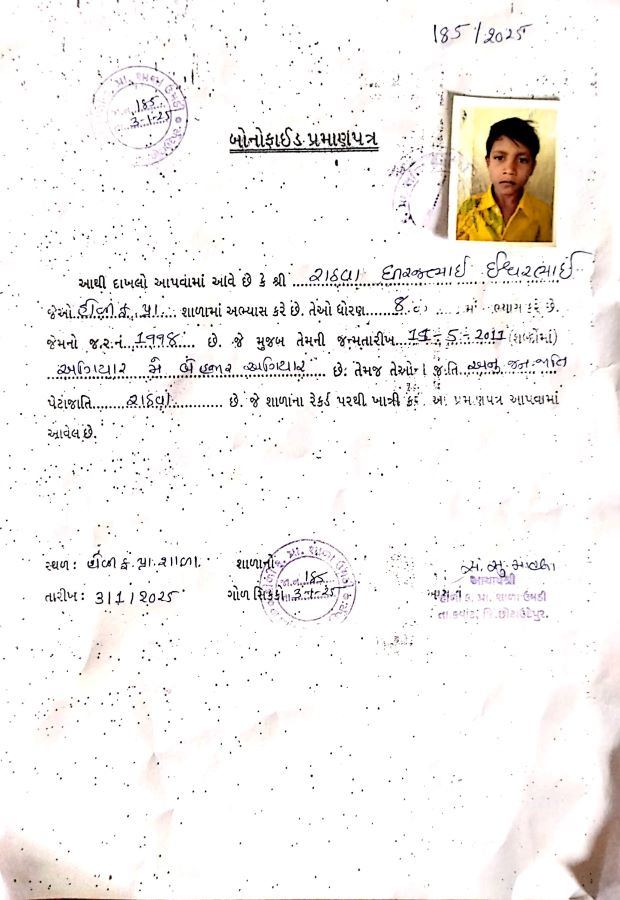 185/2025
185
3-1-25
બોનોફાઈડ પ્રમાણપત્ર
આથી દાખલો આપવામાં આવે છે કે શ્રી રાઠવા ઈશ્વરભાઈ
શાળામાં અભ્યાસ કરે છે. તેઓ ધોરણ 8 માં
જેમનો જ.ર.નં 1998 છે. જે મુજબ તેમની જન્મતારીખ 11-5-2011 (શબ્દોમાં)
અગિયાર મે બે હજાર અગિયાર છે. તેમજ તેઓની જાતિ અનુ જન જાતિ
પેટાજાતિ રાઠવા છે. જે શાળાના રેકર્ડ પરથી ખાત્રી કરી આ પ્રમાણપત્ર આપવામાં
આવેલ છે.
સ્થળ : પ્રા. શાળા. શાળાનો
185
તારીખ : 3/1/2025 ગોળ સિક્કો 3-1-25
આચાર્યશ્રી
પ્રા. શાળા ઉમઠી
તા.કવાંટ, જિ.છોટાઉદેપુર.